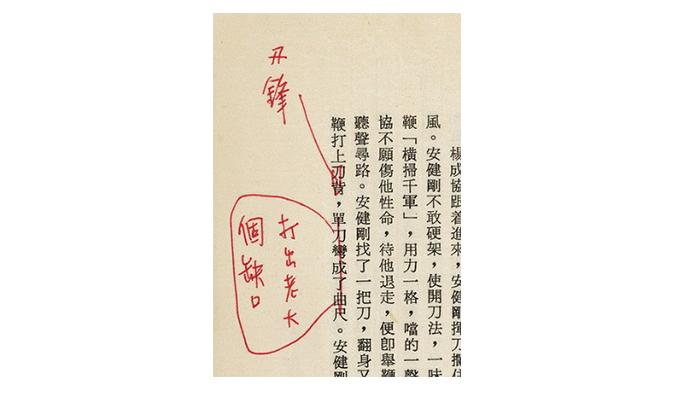 楊成協跟着進來，安健剛揮刀攔住
風。安健剛不敢硬架，使開刀法，一味
鞭「橫掃千軍」，用力一格，噹的一聲
協不願傷他性命，待他退走，便卽舉鞭
聽聲尋路。安健剛找了一把刀，翻身又
鞭打上刃背，單刀彎成了曲尺。安健剛
刃鋒
打出老大
個缺口